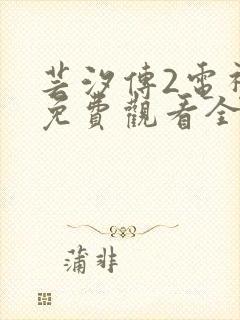 芸汐傳2雷
免費觀看全
蒲非